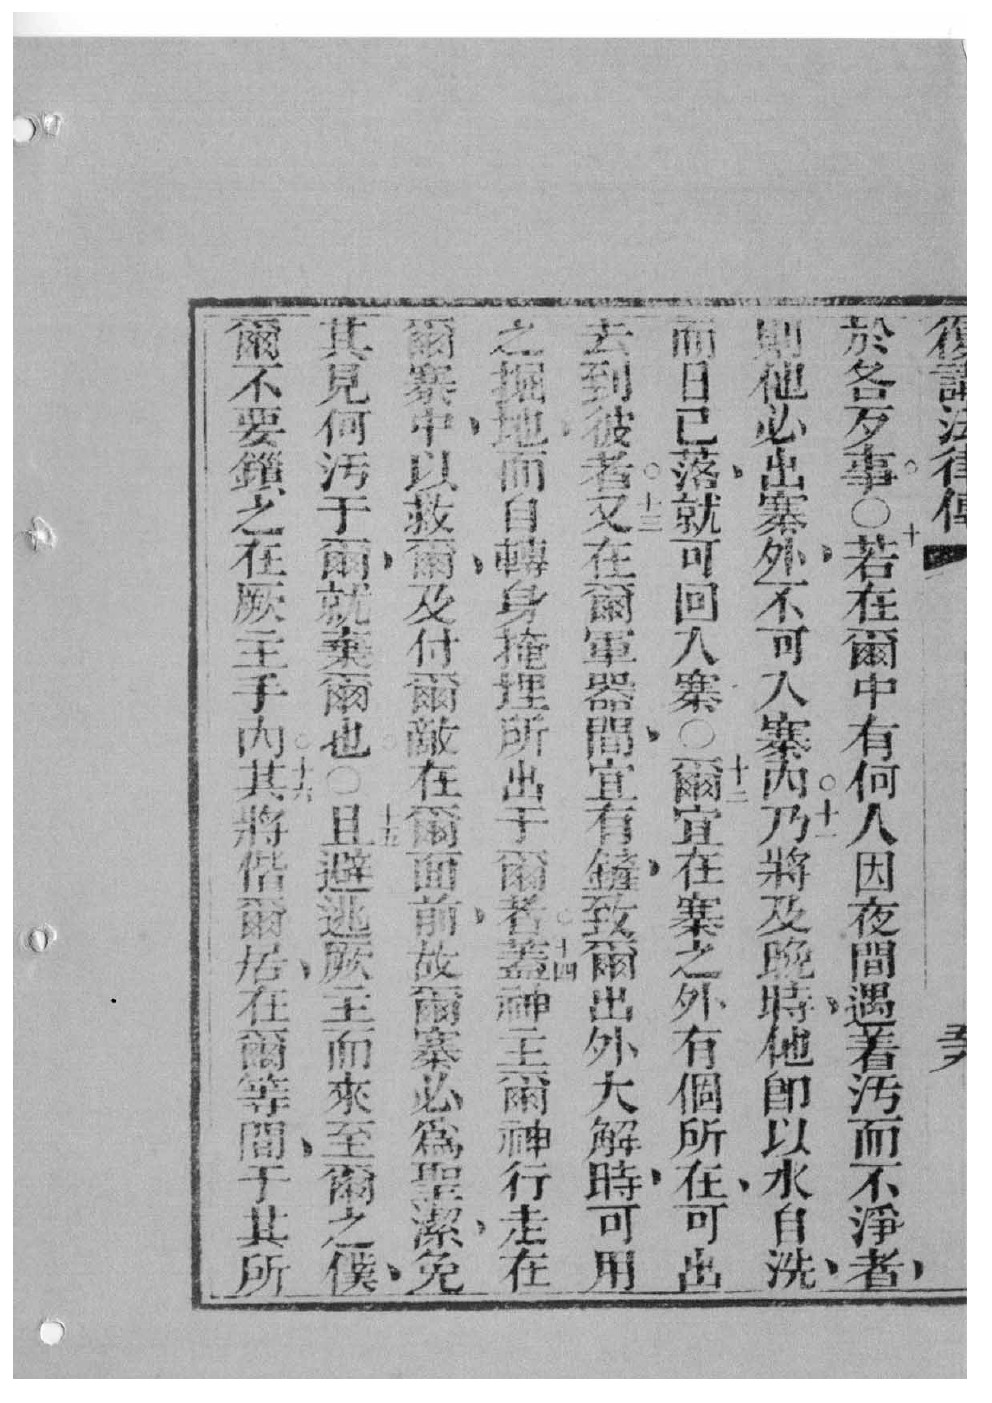 復講法律傳
於各歹事。○十若在爾中有何人因夜間遇着汚而不淨者、
則他必出寨外、不可入寨內。十一乃將及晚時、他卽以水自洗、
而日已落、就可回入寨○十二爾宜在寨之外有個所在、可出
去到彼者。十三又在爾軍器間、宜有鏟、致爾出外大解時、可用
之掘地、而自轉身掩埋所出于爾者。十四蓋神主爾神行走在
爾寨中、以救爾、及付爾敵在爾面前、故爾寨必爲聖潔、免
其見何汚于爾、就棄爾也。○十五且避逃厥主而來至爾之僕、
爾不要鎖之在厥主手內。十六其將偕爾居、在爾等間、于其所